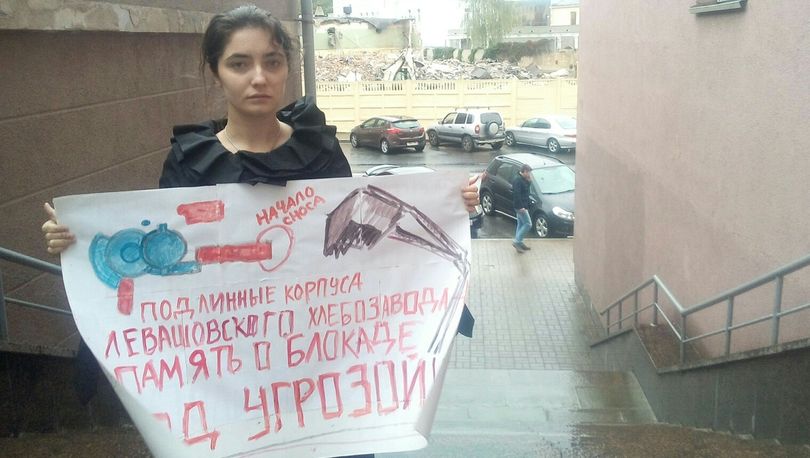 НАЧАЛО
СНОСА
ПОДЛИННЫЕ КОРПУСА
ЛЕВАШОВСКОГО ХЛЕБОЗАВОДА-
ПАМЯТЬ О БЛОКАДЕ
УГРОЗОЙ!